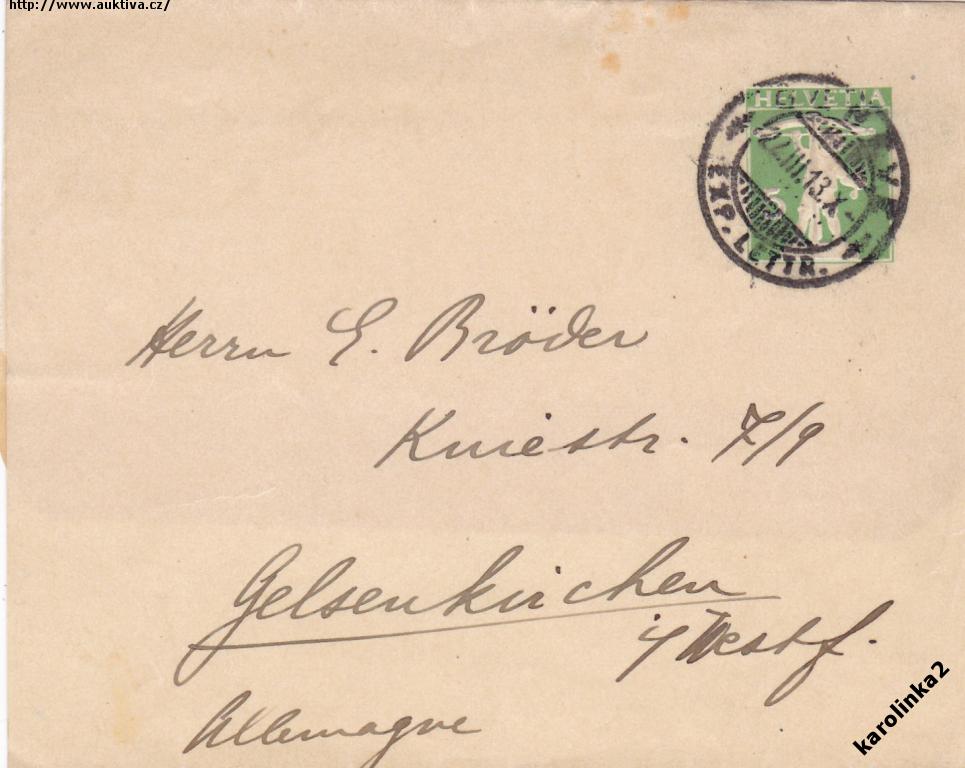 http://www.auktiva.cz/
HELVETIA
5
GENÈVE
22.III.13.X
EXP. LETTR.
Herrn E. Bröder
Kniestr. 7/9
Gelsenkirchen
i/ Westf.
Allemagne
karolinka2